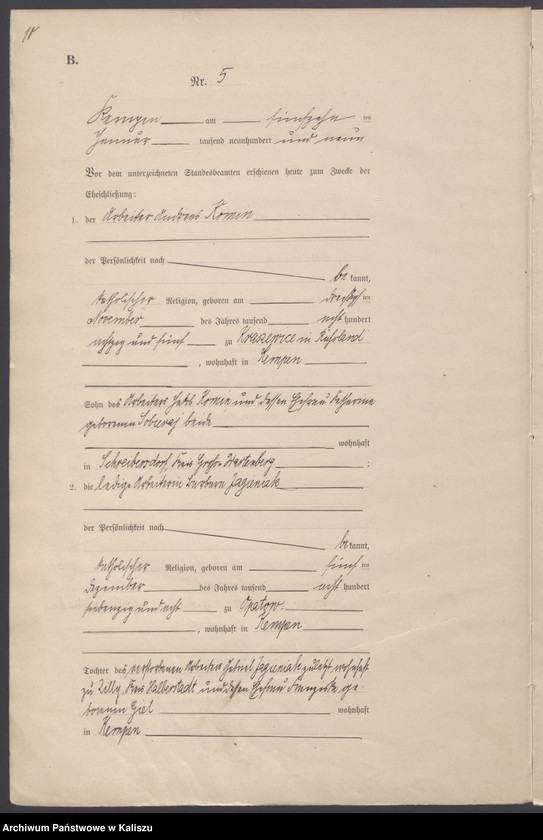 B.
Nr. 5
Kempen am fünfzehn ten
Januar tausend neunhundert und neun
Vor dem unterzeichneten Standesbeamten erschienen heute zum Zwecke der
Eheschließung:
1. der Arbeiter Andreas Komin
der Persönlichkeit nach
be kannt,
katholischer Religion, geboren am ten
November des Jahres tausend acht hundert
achtzig und fünf zu in Rußland
, wohnhaft in Kempen
Sohn des Arbeiters Komin und dessen Ehefrau Katharina
geborenen beide
wohnhaft
in Schreibersdorf, Kreis Groß-Wartenberg ;
2. die ledige Arbeiterin Barbara Jagieniak
der Persönlichkeit nach
be kannt,
katholischer Religion, geboren am fünf ten
Dezember des Jahres tausend acht hundert
siebenzig und acht zu Opatow
, wohnhaft in Kempen
Tochter des verstorbenen Arbeiters Jagieniak zuletzt wohnhaft
zu Zilly, Kreis Halberstadt und dessen Ehefrau Franziska ge-
borenen Giel wohnhaft
in Kempen
Archiwum Państwowe w Kaliszu